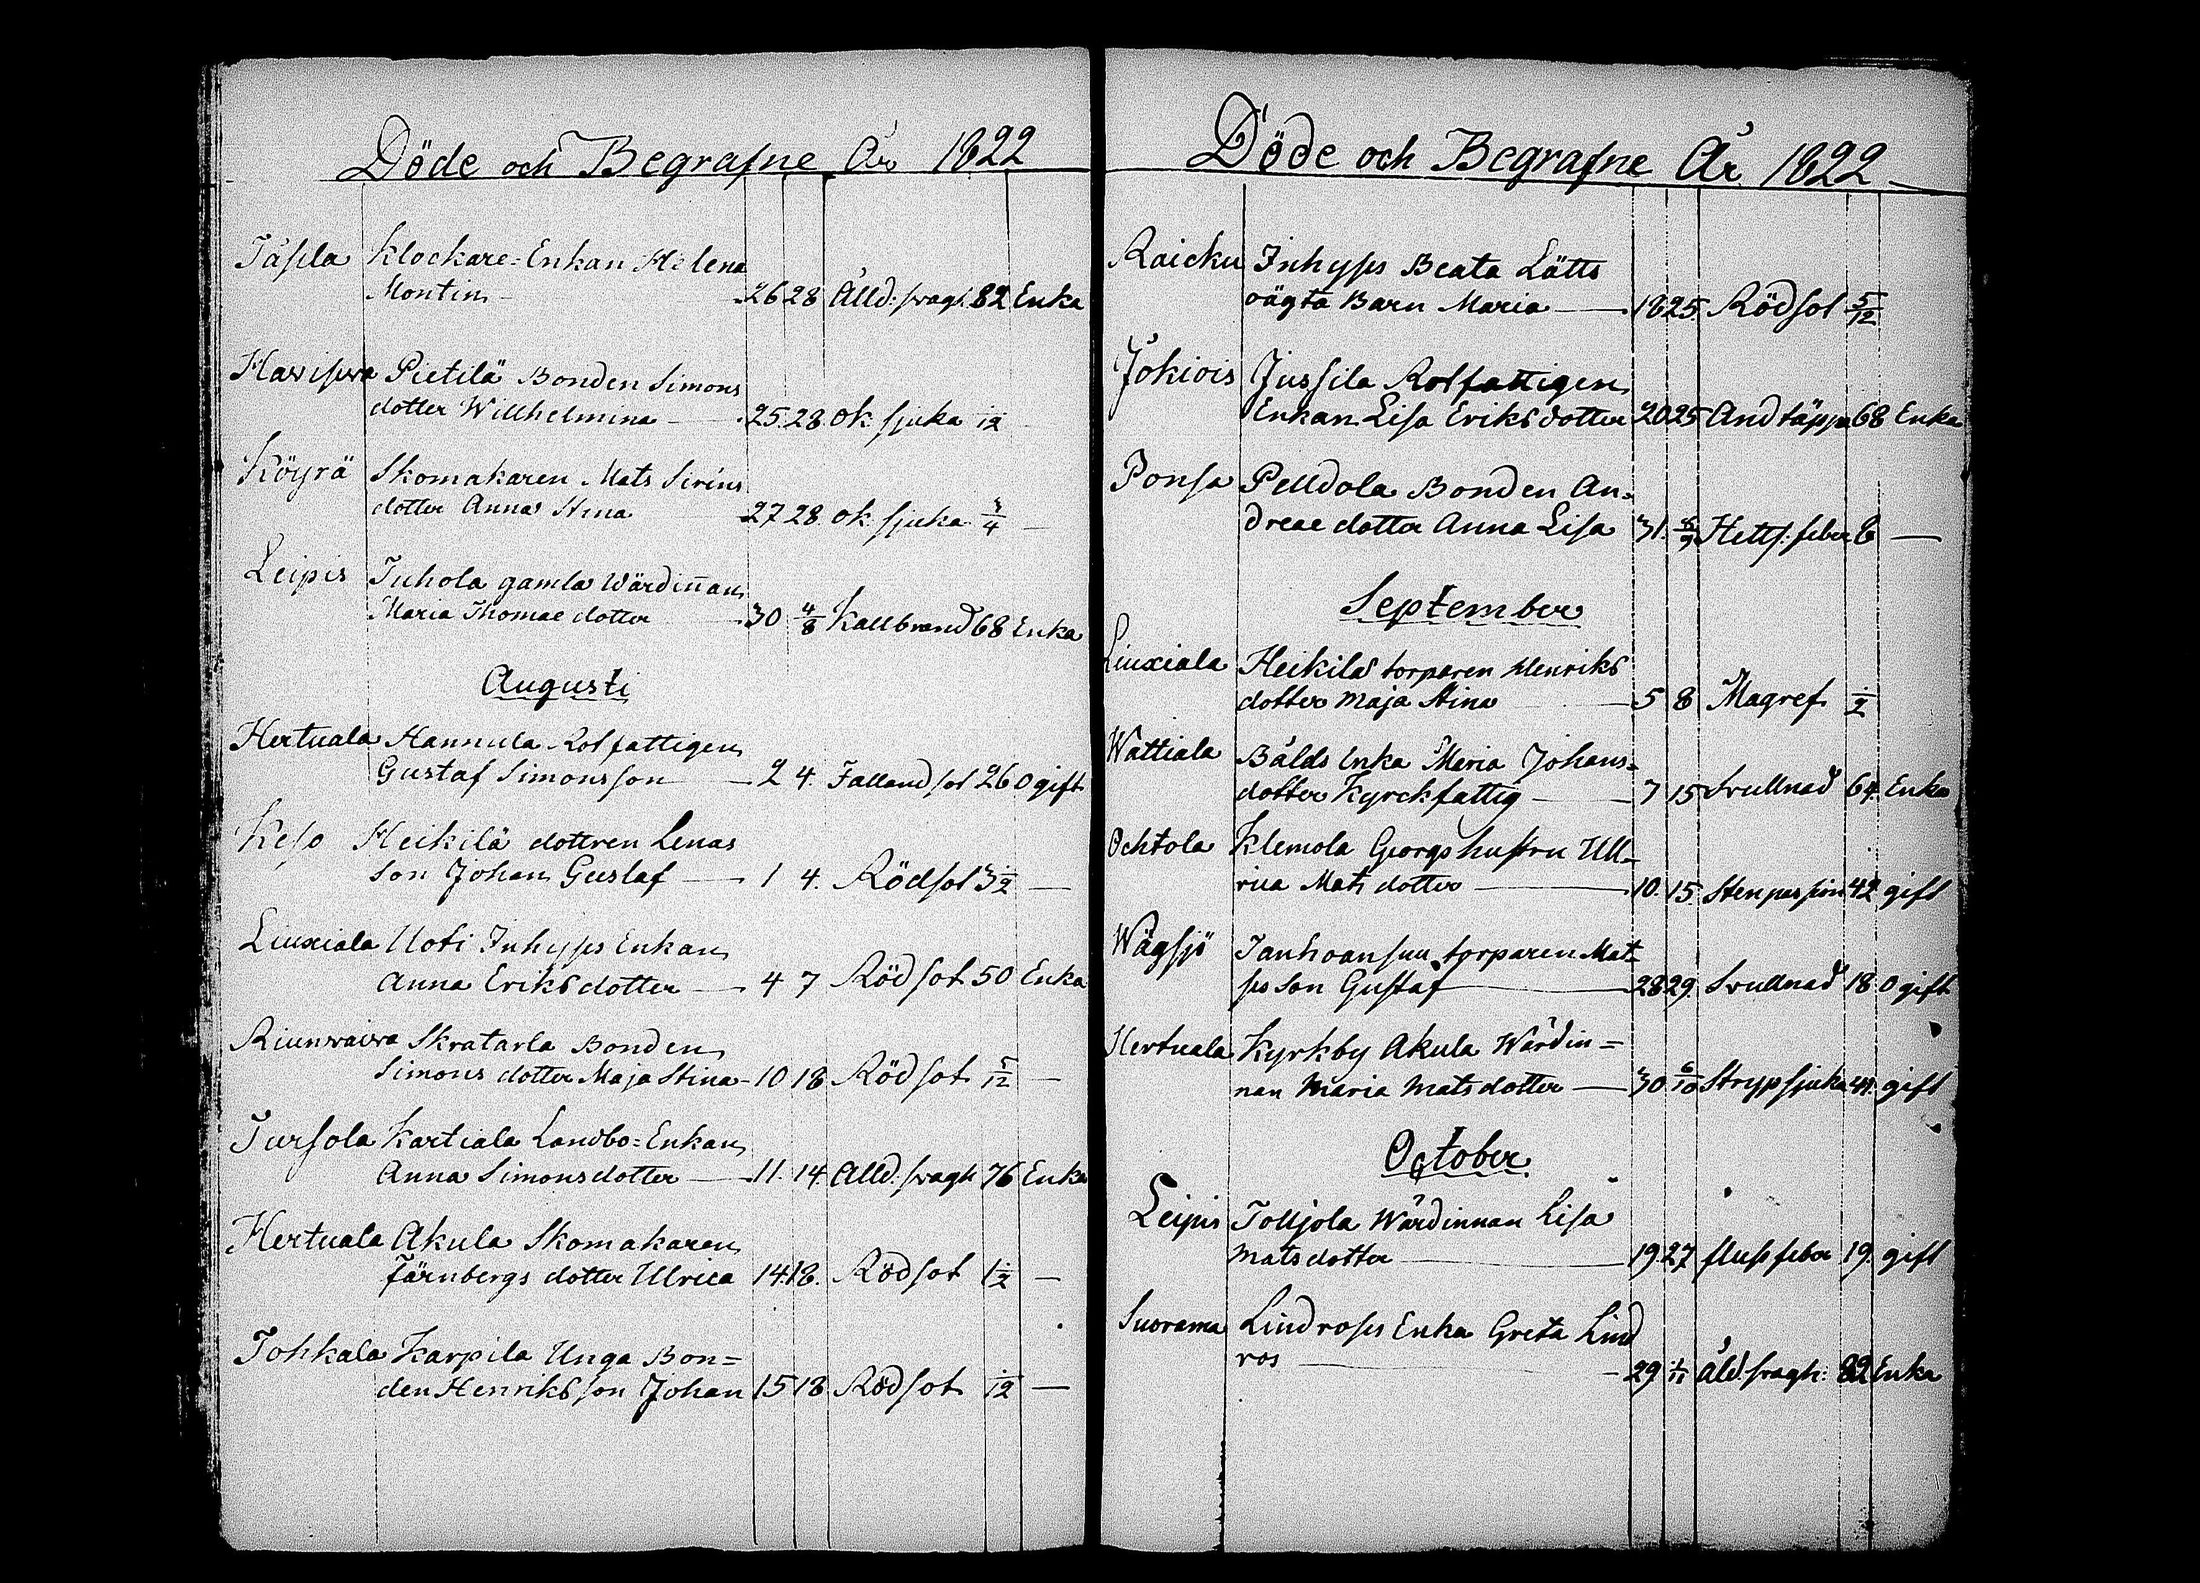 Döde och Begrafne År 1822
Klockare-Enkan Helena
Montin 26 28 Ålld: swagh. 82 Enka
Pietilä Bonden Simons
dotter Willhelmina 25. 28. ok sjuka 1/12
Köyrä Skomakaren Mats Siréns
dotter Anna Stina 27 28 ok sjuka 3/4 —
Leipis Juhola gamla Wärdiñan
Maria Thomae dotter 30 4/8 Kallbrand 68 Enka
Augusti
Hertuala Hannula Rotfattigen
Gustaf Simonsson 2 4. Fallandsot 26 Ogift
Keso Heikilä dottren Lenas
Son Johan Gustaf 1 4. Rödsot 3 1/2 —
Liuxiala Uoti Inhyses Enkan
Anna Eriksdotter 4 7 Rödsot 50 Enka
Skratarla Bonden
Simons dotter Maja Stina 10 18 Rödsot 5/12 —
Tursola Kartiala Landbo-Enkan
Anna Simonsdotter 11. 14. Alld: swagh 76 Enka
Hertuala Akula Skomakaren
Färnbergs dotter Ulrica 14 18. Rödsot 1 1/2 —
Tohkala Karpila Unga Bon=
den Henriks son Johan 15 18 Rödsot 1/12 —
Döde och Begrafne År 1822
Raicku Inhyses Beata Lätts
oägta Barn Maria 18 25. Rödsot 5/12
Jokiois Jussila Rotfattigen
Enkan Lisa Eriksdotter 20 25 Andtäppa 68 Enka
Ponsa Pelldola Bonden An=
dreae dotter Anna Lisa 31. Hetts: feber 8 —
September
Liuxiala Heikilä torparen Henriks
dotter Maja Stina 5 8 Magref 1/2
Wattiala Bålds Enka Maria Johans=
dotter Kyrckfattig 7 15 Svullnad 64. Enka
Ochtola Klemola Georgs hustru Ull=
rica Mats dotter 10. 15. Stenpassion 42 gift
Wägsjö Tanhoansuu torparen Mat=
ss Son Gustaf 28 29. Svullnad 18 Ogift
Hertuala Kyrkby Akula Wärdin=
nan Maria Matsdotter 30 6/10 Strypsjuka gift
October
Leipis Tolljola Wärdinnan Lisa
Matsdotter 19. 27 fluss feber 19. gift
Suorama Lindross Enka Greta Lind
ros 29 1/11 Åld. swagh: 82 Enka